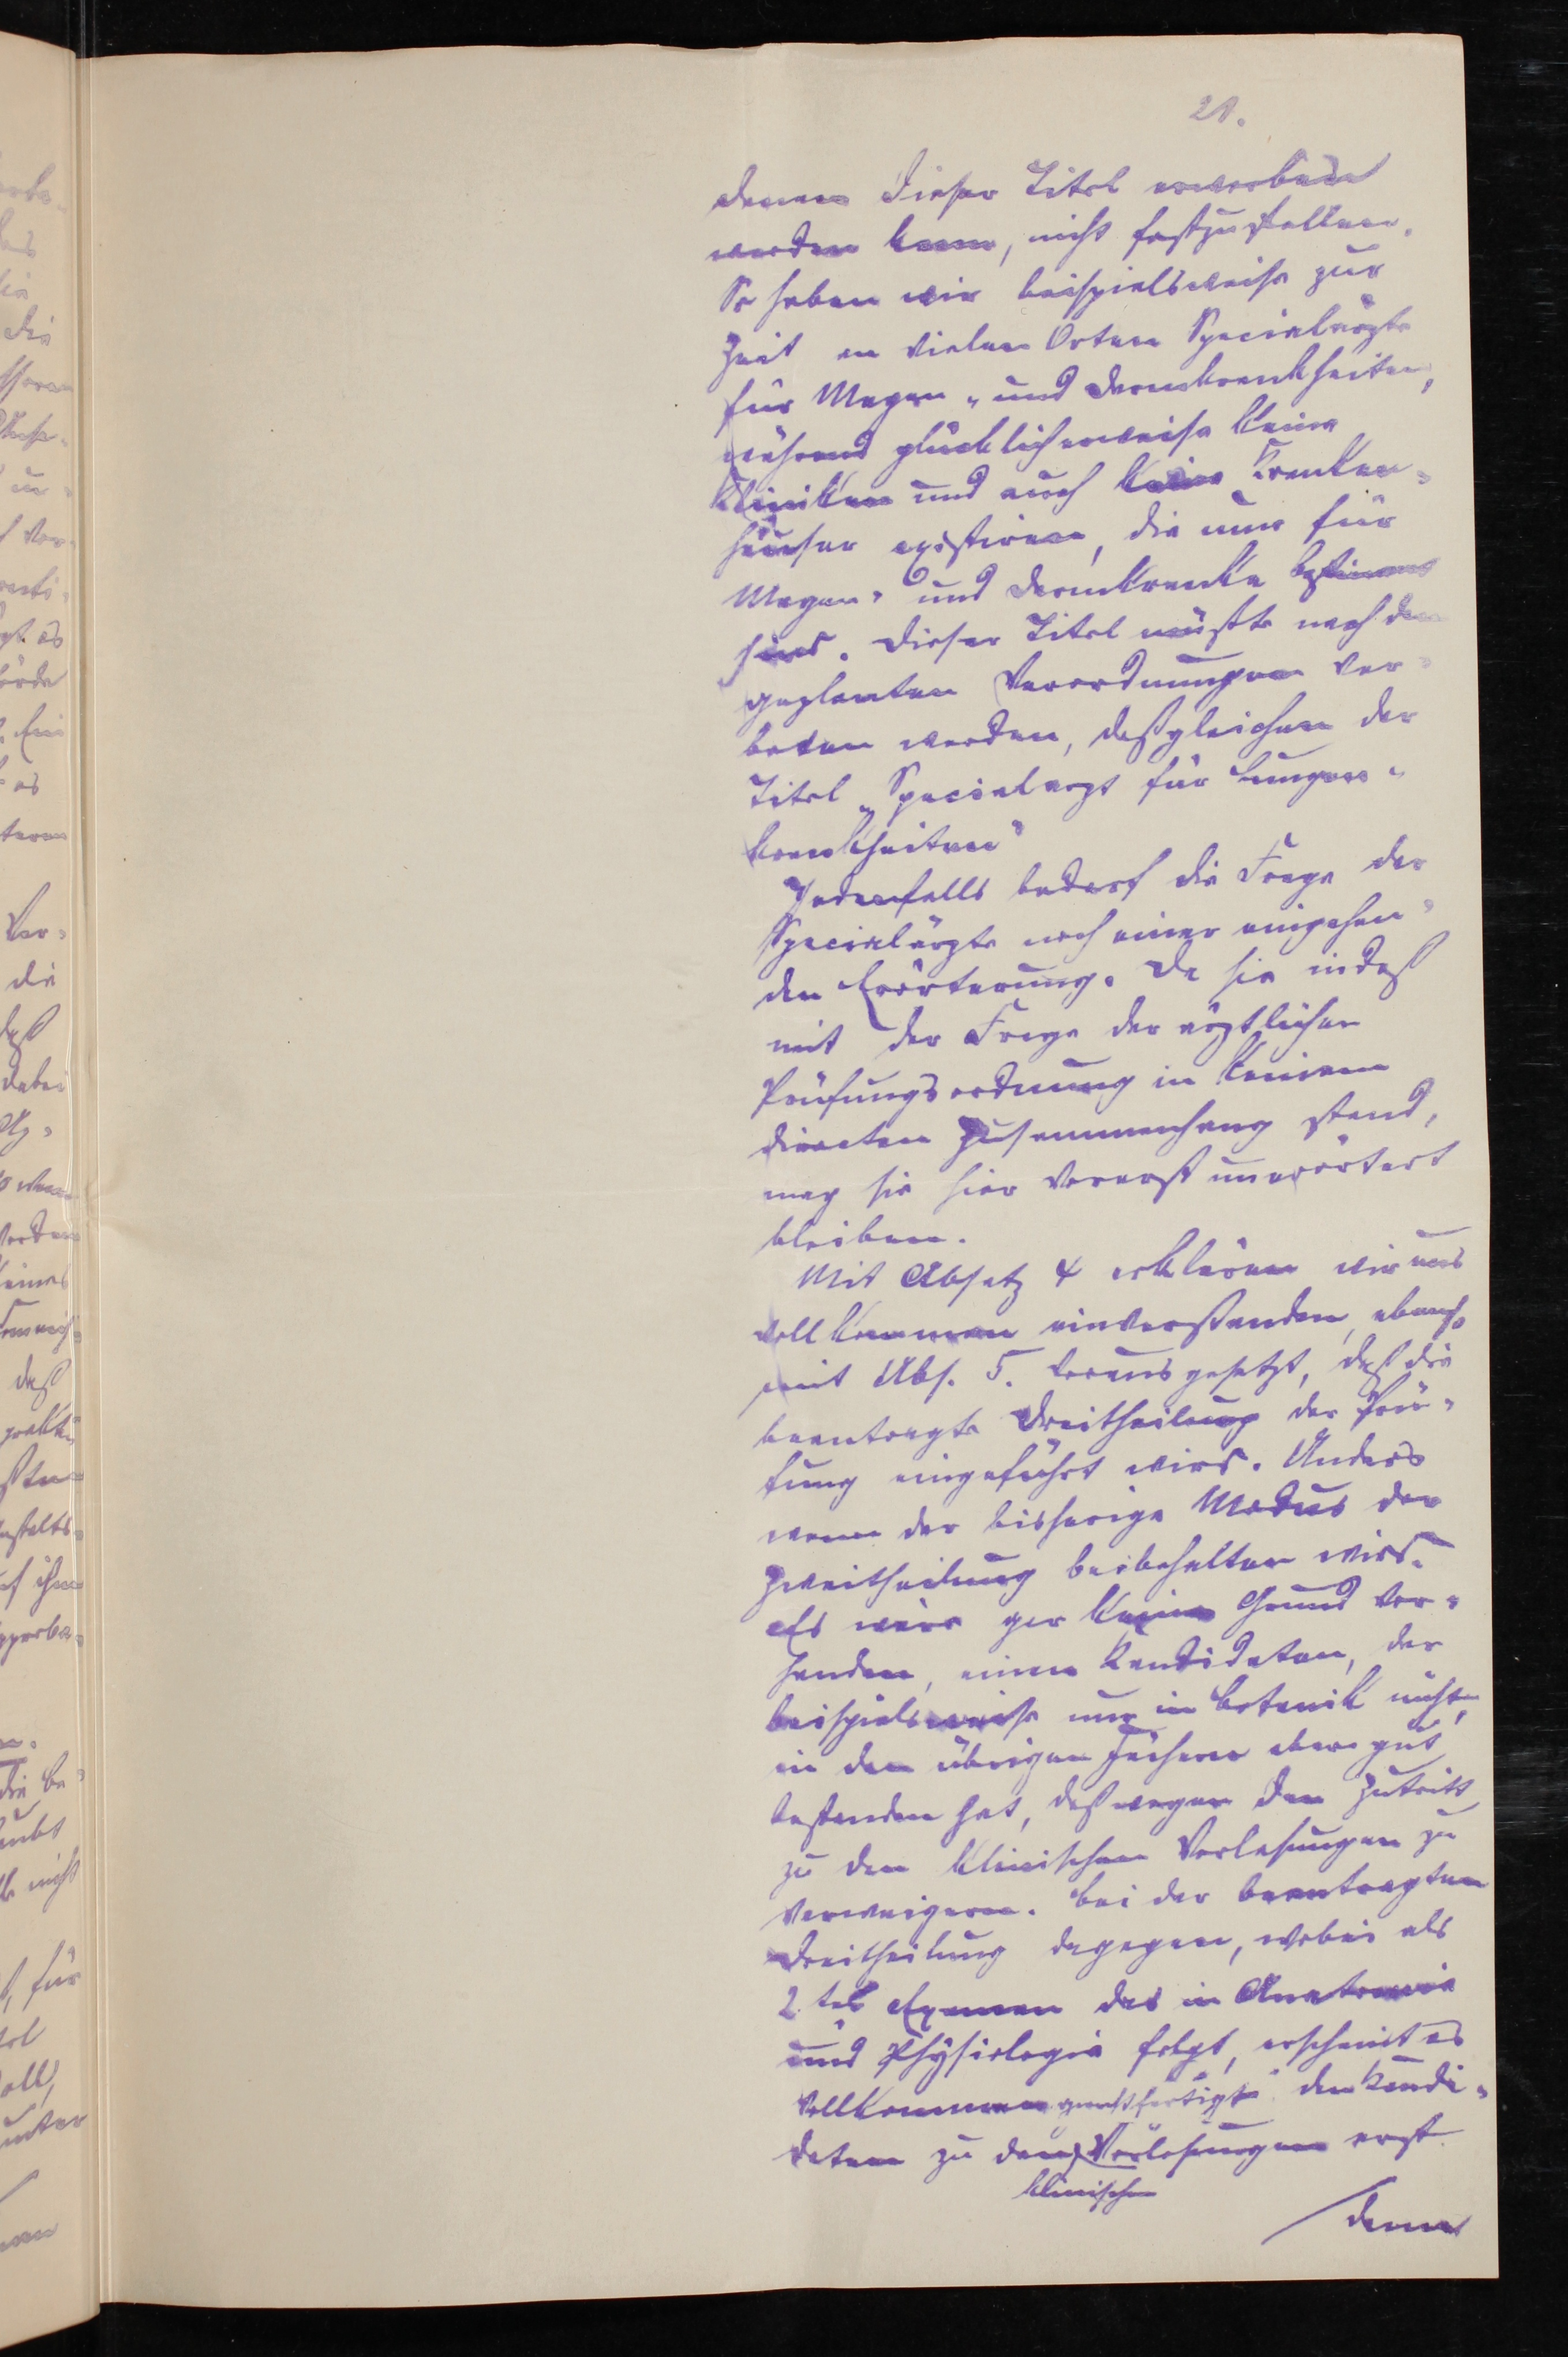 21.
denen dieser Titel erworben
werden kann, nicht festzustellen.
So haben wir beispielsweise zur
Zeit an vielen Orten Specialärzte
für Magen- und Darmkrankheiten,
während glücklicherweise keine
Kliniken und auch keine Kranken-
häuser existiren, die nur für
Magen- und Darmkranke bestimmt
sind. Dieser Titel müßte nach den
geplanten Verordnungen ver-
boten werden, deßgleichen der
Titel „Specialarzt für Lungen-
krankheiten"
Jedenfalls bedarf die Frage der
Specialärzte noch einer eingehen-
den Erörterung. Da sie indeß
mit der Frage der ärztlichen
Prüfungsordnung in keinem
directen Zusammenhang stand,
mag sie hier vorerst unerörtert
bleiben.
Mit Absatz 4 erklären wir uns
vollkommen einverstanden, ebenso
mit Abs. 5. vorausgesetzt, daß die
beantragte Dreitheilung der Prü-
fung eingeführt wird. Anders
wenn der bisherige Modus der
Zweitheilung beibehalten wird.
Es wäre gar kein Grund vor-
handen, einen Kandidaten, der
beispielsweise nur in Botanik nicht,
in den übrigen Fächern aber gut
bestanden hat, deßwegen den Zutritt
zu den klinischen Vorlesungen zu
verweigern. Bei der beantragten
Dreitheilung dagegen, wobei als
2. tes Examen das in Anatomie
und Physiologie folgt, erscheint es
vollkommen gerechtfertigt den Kandi-
daten zu den Vorlesungen erst
klinischen
dann